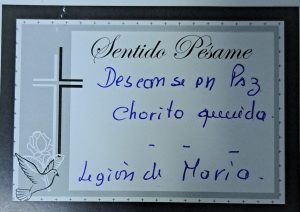 Sentido Pésame
Descanse en Paz
Chorito querida.
- - -
Legión de Maria.